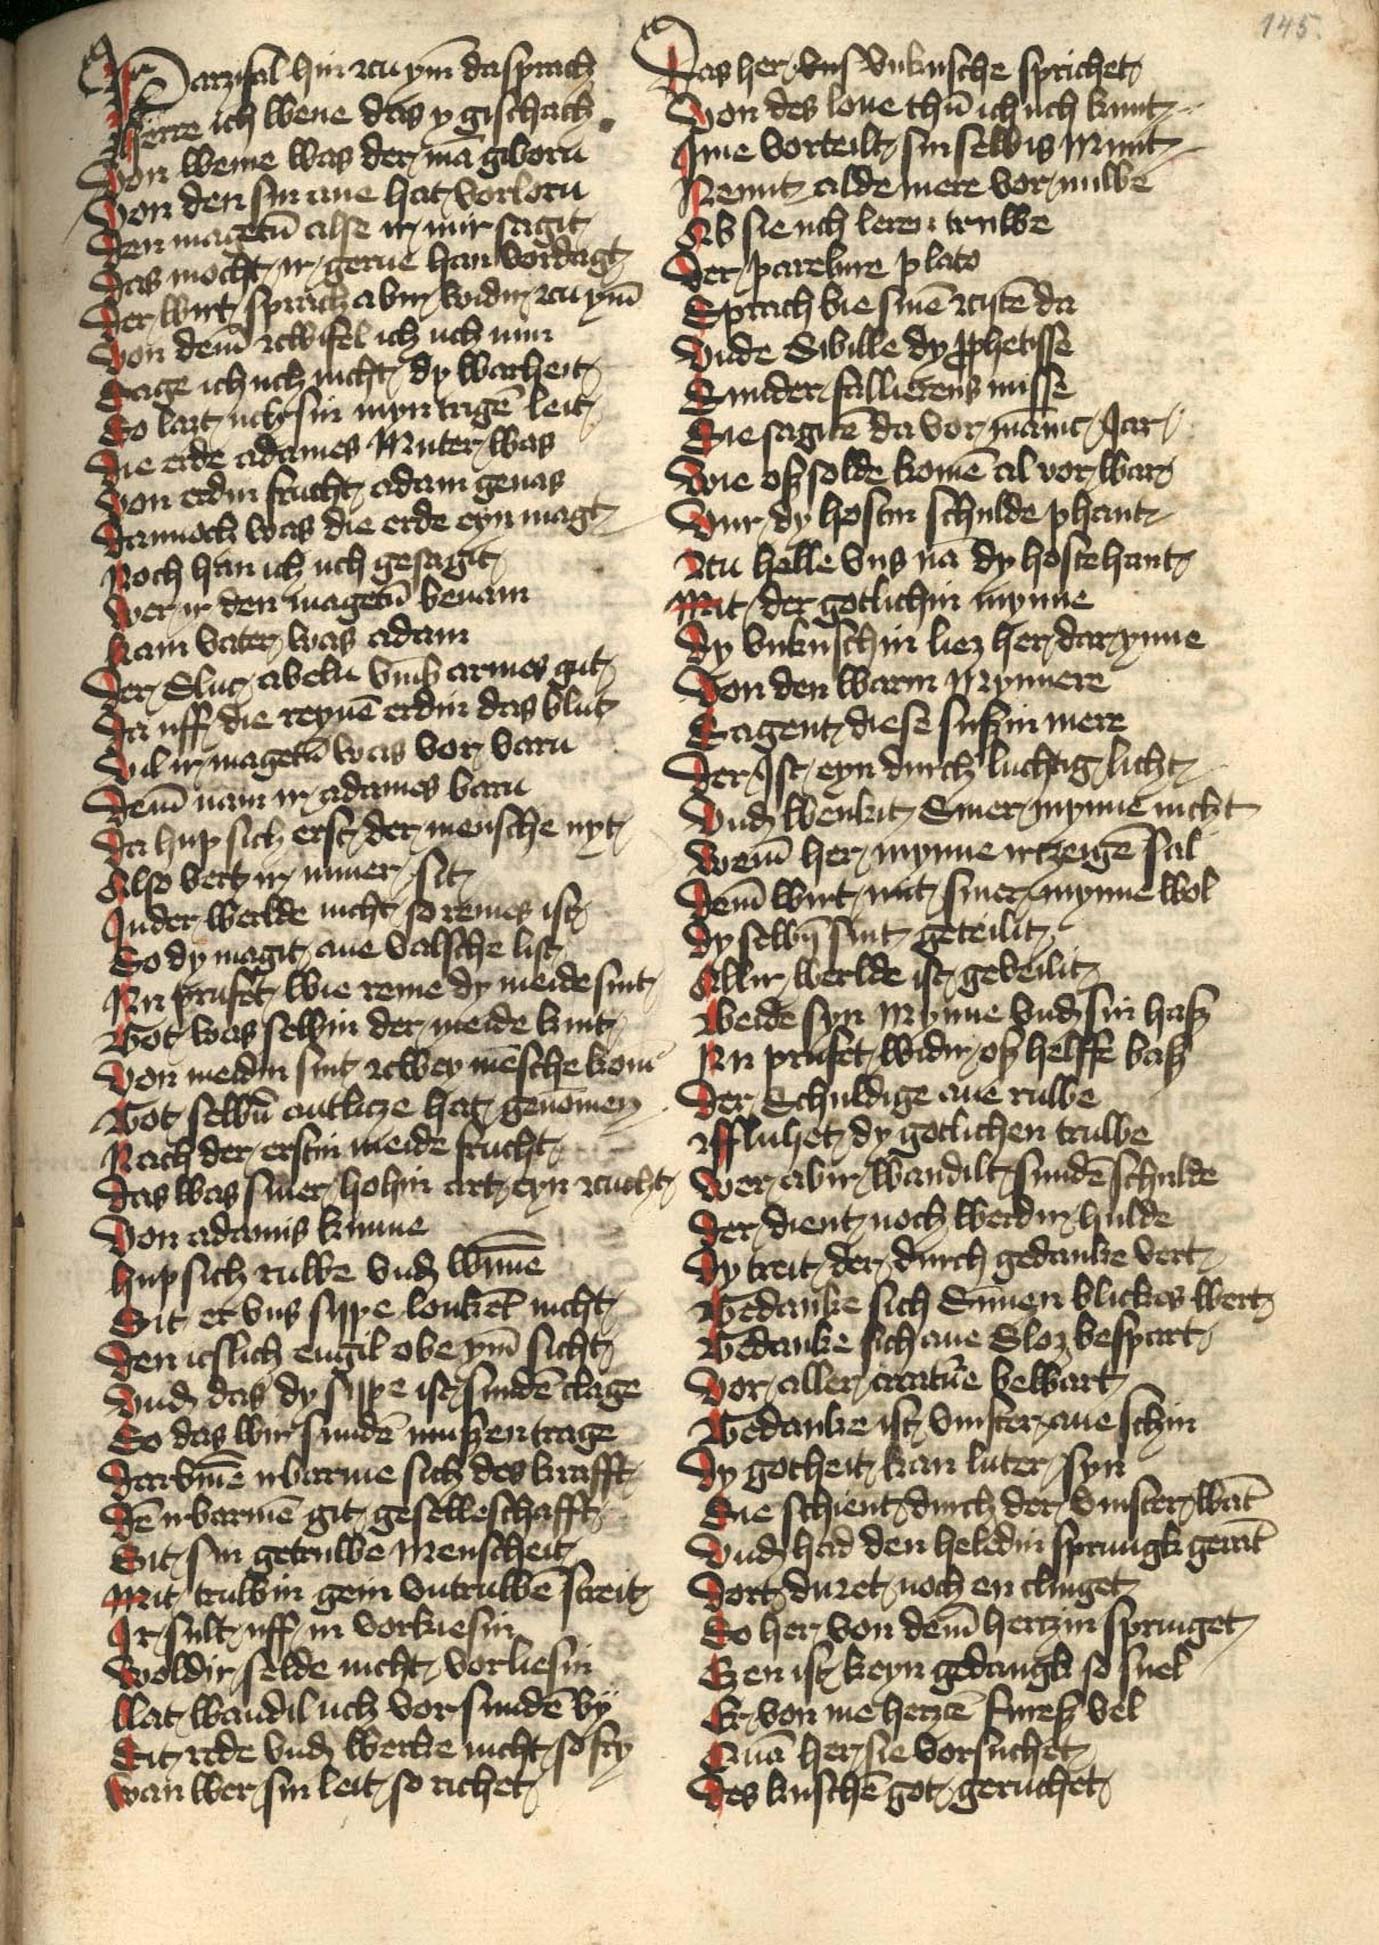 145.
Parzifal hin zcu ym̄ da sprach
Herre ich wene das y gischach
Von weme was der mā giborn
Von den sin ane hat vorlorn
Den magetū alse ir mir sagit
Das mocht ir gerne han vordagt
Der wirt sprach abir widir zcu ym̄
Von dem̄ zcwifel ich uch nim
Sage ich uch nicht dy warheit
So lart uch sin myn tragē leit
Die erde adames Muter was
Von erdin frucht adam genas
Dannoch was die erde eyn magt
Noch han ich uch gesagit
Wer ir den magetū benam
kam vater was adam
Der Slug abeln vmb armes gut
Da uff die reynē erdin das blut
Vil ir magetū was vor varn
Dem̄ nam ir adames barn
Da hup sich erst der mensche nyt
Also vert ir immer sit
In der werlde nicht so reines ist
So dy magit ane valsche list
Nu prufet wie reine dy meide sint
Got was selbin der meide kint
Von meidin sint zcwey mēsche komē
Got selbū antlicze hat genomen
Nach der erstin meide frucht
Das was siner hohin art eyn zcucht
Von adamis kunne
Hup sich rulbe vnd wun̄e
Sit er vns sippe loukēt nicht
Den icslich engil obe ym̄ sicht
Vnd das dy sippe ist sundē clage
So das wir sundē muszen trage
Darvm̄e irbarme sich des krafft
Dē irbarmē git geselleschafft
Sit sin getruwe Menscheit
Mit truwin gein vntruwē streit
Ir sult uff in vorkiesin
Woldir selde nicht vorliesin
Lat wandil uch vor sundē by
Sit rede vnd werke nicht so fry
Wan wer sin leit so richet
Das her vns vnkusche sprichet
Von des lone thū ich uch kunt
Ime vorteilt sin selbis Munt
Nemit alde mere vor nuwe
Ab sie uch leren truwe
Der parelure plato
Sprach bie sinē zcytē da
Vnde Sibille dy prophetisse
Sunder fallierens misse
Sie sagitē da vor manic Jar
Wie osz solde komē al vor war
Vur dy hostin schulde phant
Zcu helle vns nā dy hoste hant
Mit der gotlichin mynne
Dy vnkuschin liez her dar ynne
Von den warin Mynnere
Sagent diese suszin mere
Der Ist eyn durch luchtig licht
Vnd wenkit Siner mynne nicht
Wem̄ her mynne irtzeigē sal
Dem̄ wirt mit siner mynne wol
Dy selbī sint geteilit
Allir werlde ist geveilit
Beide syn Mynne vnd sin hasz
Nu prufet widir osz helffe basz
Der Schuldige ane rulbe
Fluhet dy gotlichen trulbe
Wer abir wandilt sundē schulde
Der dient noch werdir hulde
Dy treit der durch gedanke vert
Gedanke sich Sunnen blickes wert
Gedanke sich ane Sloz bespart
Vor aller creatūe bewart
Gedanke ist vinster ane schin
Dy gotheit kan luter syn
Sie schient durch der vinster wāt
Vnd had den heledin sprungk gerāt
Dort duret noch en clinget
So her von dem̄ hertzin springet
Ez en ist keyn gedangk so snel
Er von me hertzē furesz vel
Quā her sie vorsuchet
Des kuschē got geruchet